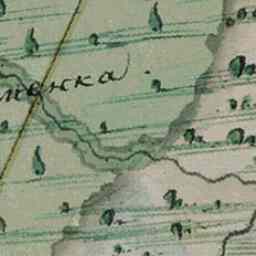 менка